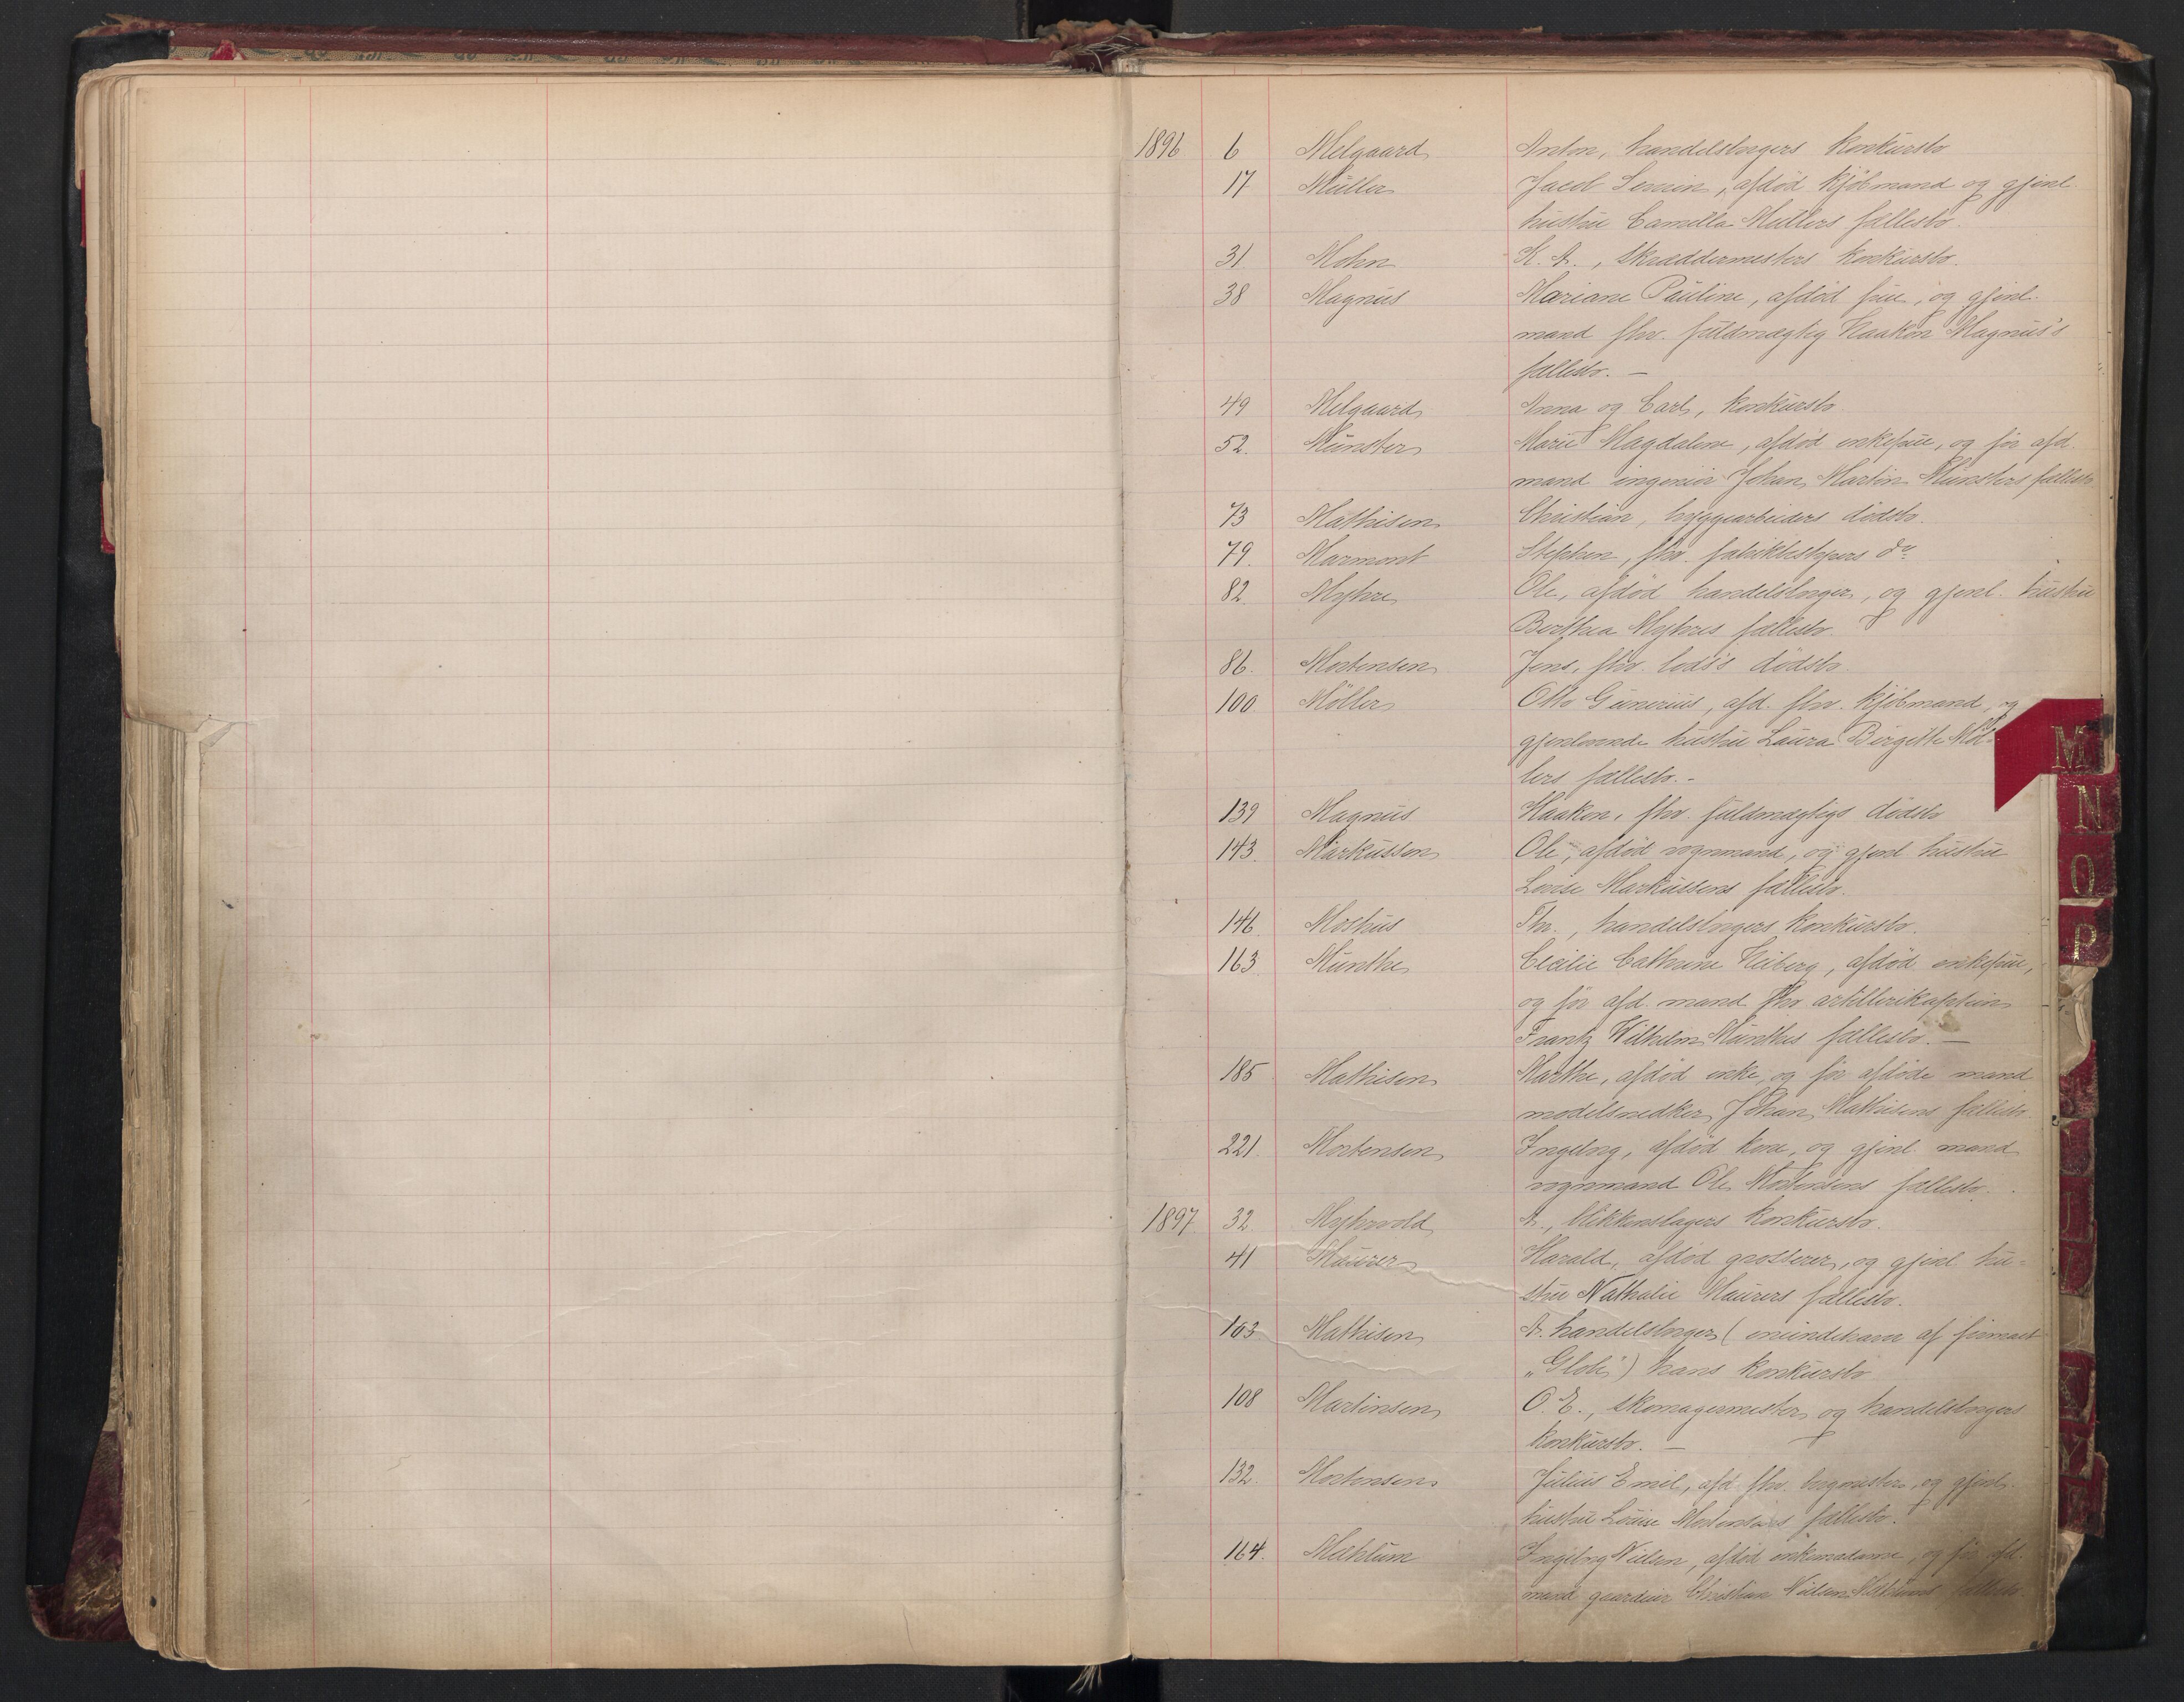 1896 6 Melgaard Anton, handelsborgers konkursbo
17 Müller Jacob Severin, afdød kjøbmand og gjenl.
hustru Camilla Müllers fællesbo.
31 Mohn K. A., skræddermesters konkursbo.
38 Magnus Mariane Pauline, afdød frue, og gjenl.
mand fhv. fuldmægtig Haakon Magnus's
fællesbo. —
49 Melgaard Anna og Carl, konkursbo
52. Münster Marie Magdalene, afdød enkefrue, og før afd.
mand ingeniør Johan Martin Münsters fællesbo
73 Mathisen Christian, bryggearbeiders dødsbo.
79. Marmont Stephen, fhv. fabrikbestyrers do
82. Myhre Ole, afdød handelsborger, og gjenl. hustru
Berthea Myhres fællesbo.
86. Mortensen Jens, fhv. lods's dødsbo
100 Möller Otto Gunerius, afd. fhv. kjøbmand, og
gjenlevende hustru Laura Birgitte Möl-
lers fællesbo. -
139 Magnus Haakon, fhv. fuldmægtigs dødsbo
143. Markussen Ole, afdød vognmand, og gjenl. hustru
Lovise Markussens fællesbo.
146. Moshus Th., handelsborgers konkursbo.
163. Munthe Cecilie Cathrine Heiberg, afdød enkefrue,
og før afd. mand fhv artillerikaptein
Frantz Wilhelm Munthes fællesbo. —
185 Mathisen Marthe, afdød enke, og før afdøde mand
modelsnedker Johan Mathisens fællesbo.
221. Mortensen Ingeborg, afdød kone, og gjenl. mand
vognmand Ole Mortensens fællesbo.
1897 32. Myhrvold A., blikkenslagers konkursbo.
41 Maurer Harald, afdød grosserer, og gjenl. hu-
stru Nathalie Maurers fællesbo.
103 Mathisen A. handelsborger (eneindehaver af firmaet
„Globe") hans konkursbo
108 Martinsen O. E., skomagermester og handelsborgers
konkursbo. —
132. Mortensen Julius Emil, afd. fhv. bergmester, og gjenl.
hustru Louise Mortensens fællesbo.
164. Mæhlum Ingeborg Nielsen, afdød enkemadame, og før afd.
mand gaardeier Christian Nielsen Mæhlums fællesbo.
M
N
O
P